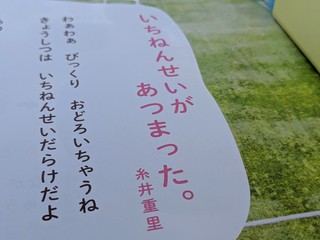 いちねんせいが
あつまった。
糸井重里
わぁわぁ びっくり おどろいちゃうね
きょうしつは いちねんせいだらけだよ